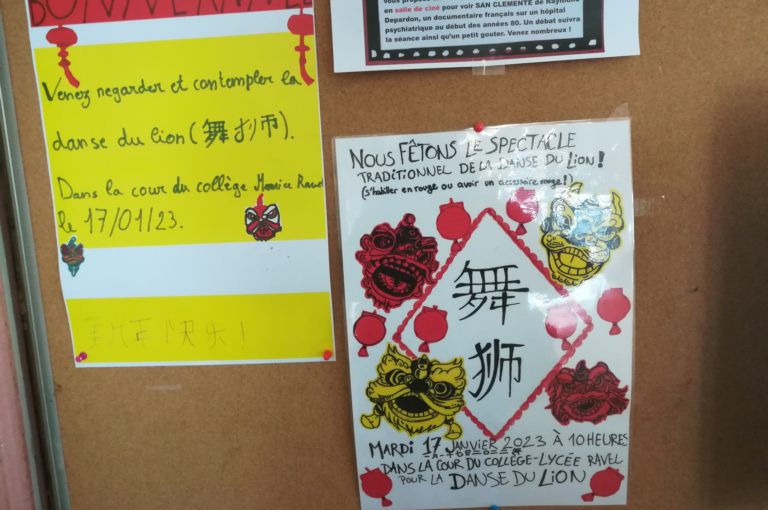 BONNE ANNÉE
Venez regarder et contempler la
danse du lion (舞狮).
Dans la cour du collège Maurice Ravel
le 17/01/23.
快乐!
en salle de ciné pour voir SAN CLEMENTE de Raymond
Depardon, un documentaire français sur un hôpital
psychiatrique au début des années 80. Un débat suivra
la séance ainsi qu'un petit gouter. Venez nombreux !
NOUS FÊTONS LE SPECTACLE
TRADITIONNEL DE LA DANSE DU LION!
(s'habiller en rouge ou avoir un accessoire rouge!)
舞
狮
MARDI 17 JANVIER 2023 À 10 HEURES
DANS LA COUR DU COLLÈGE-LYCÉE RAVEL
POUR LA DANSE DU LION